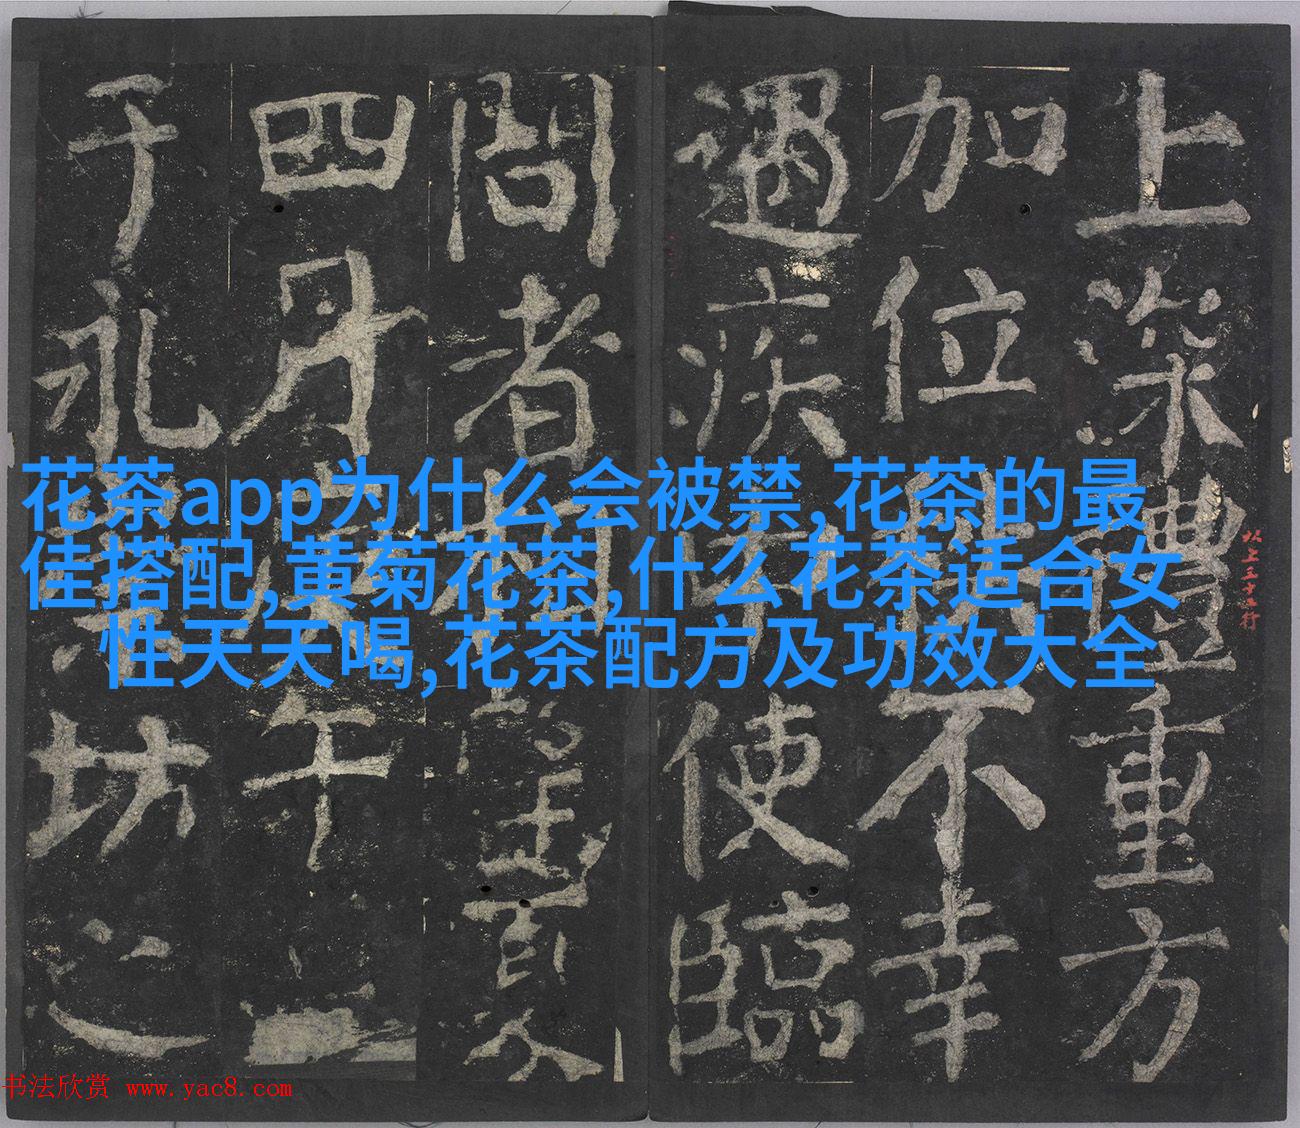 上深重方
加位不幸
遇疾使臨
問者望夏
四月午
于永坊之
花茶app为什么会被禁,花茶的最
佳搭配,黄菊花茶,什么花茶适合女
性天天喝,花茶配方及功效大全
书法欣赏 www.yac8.com